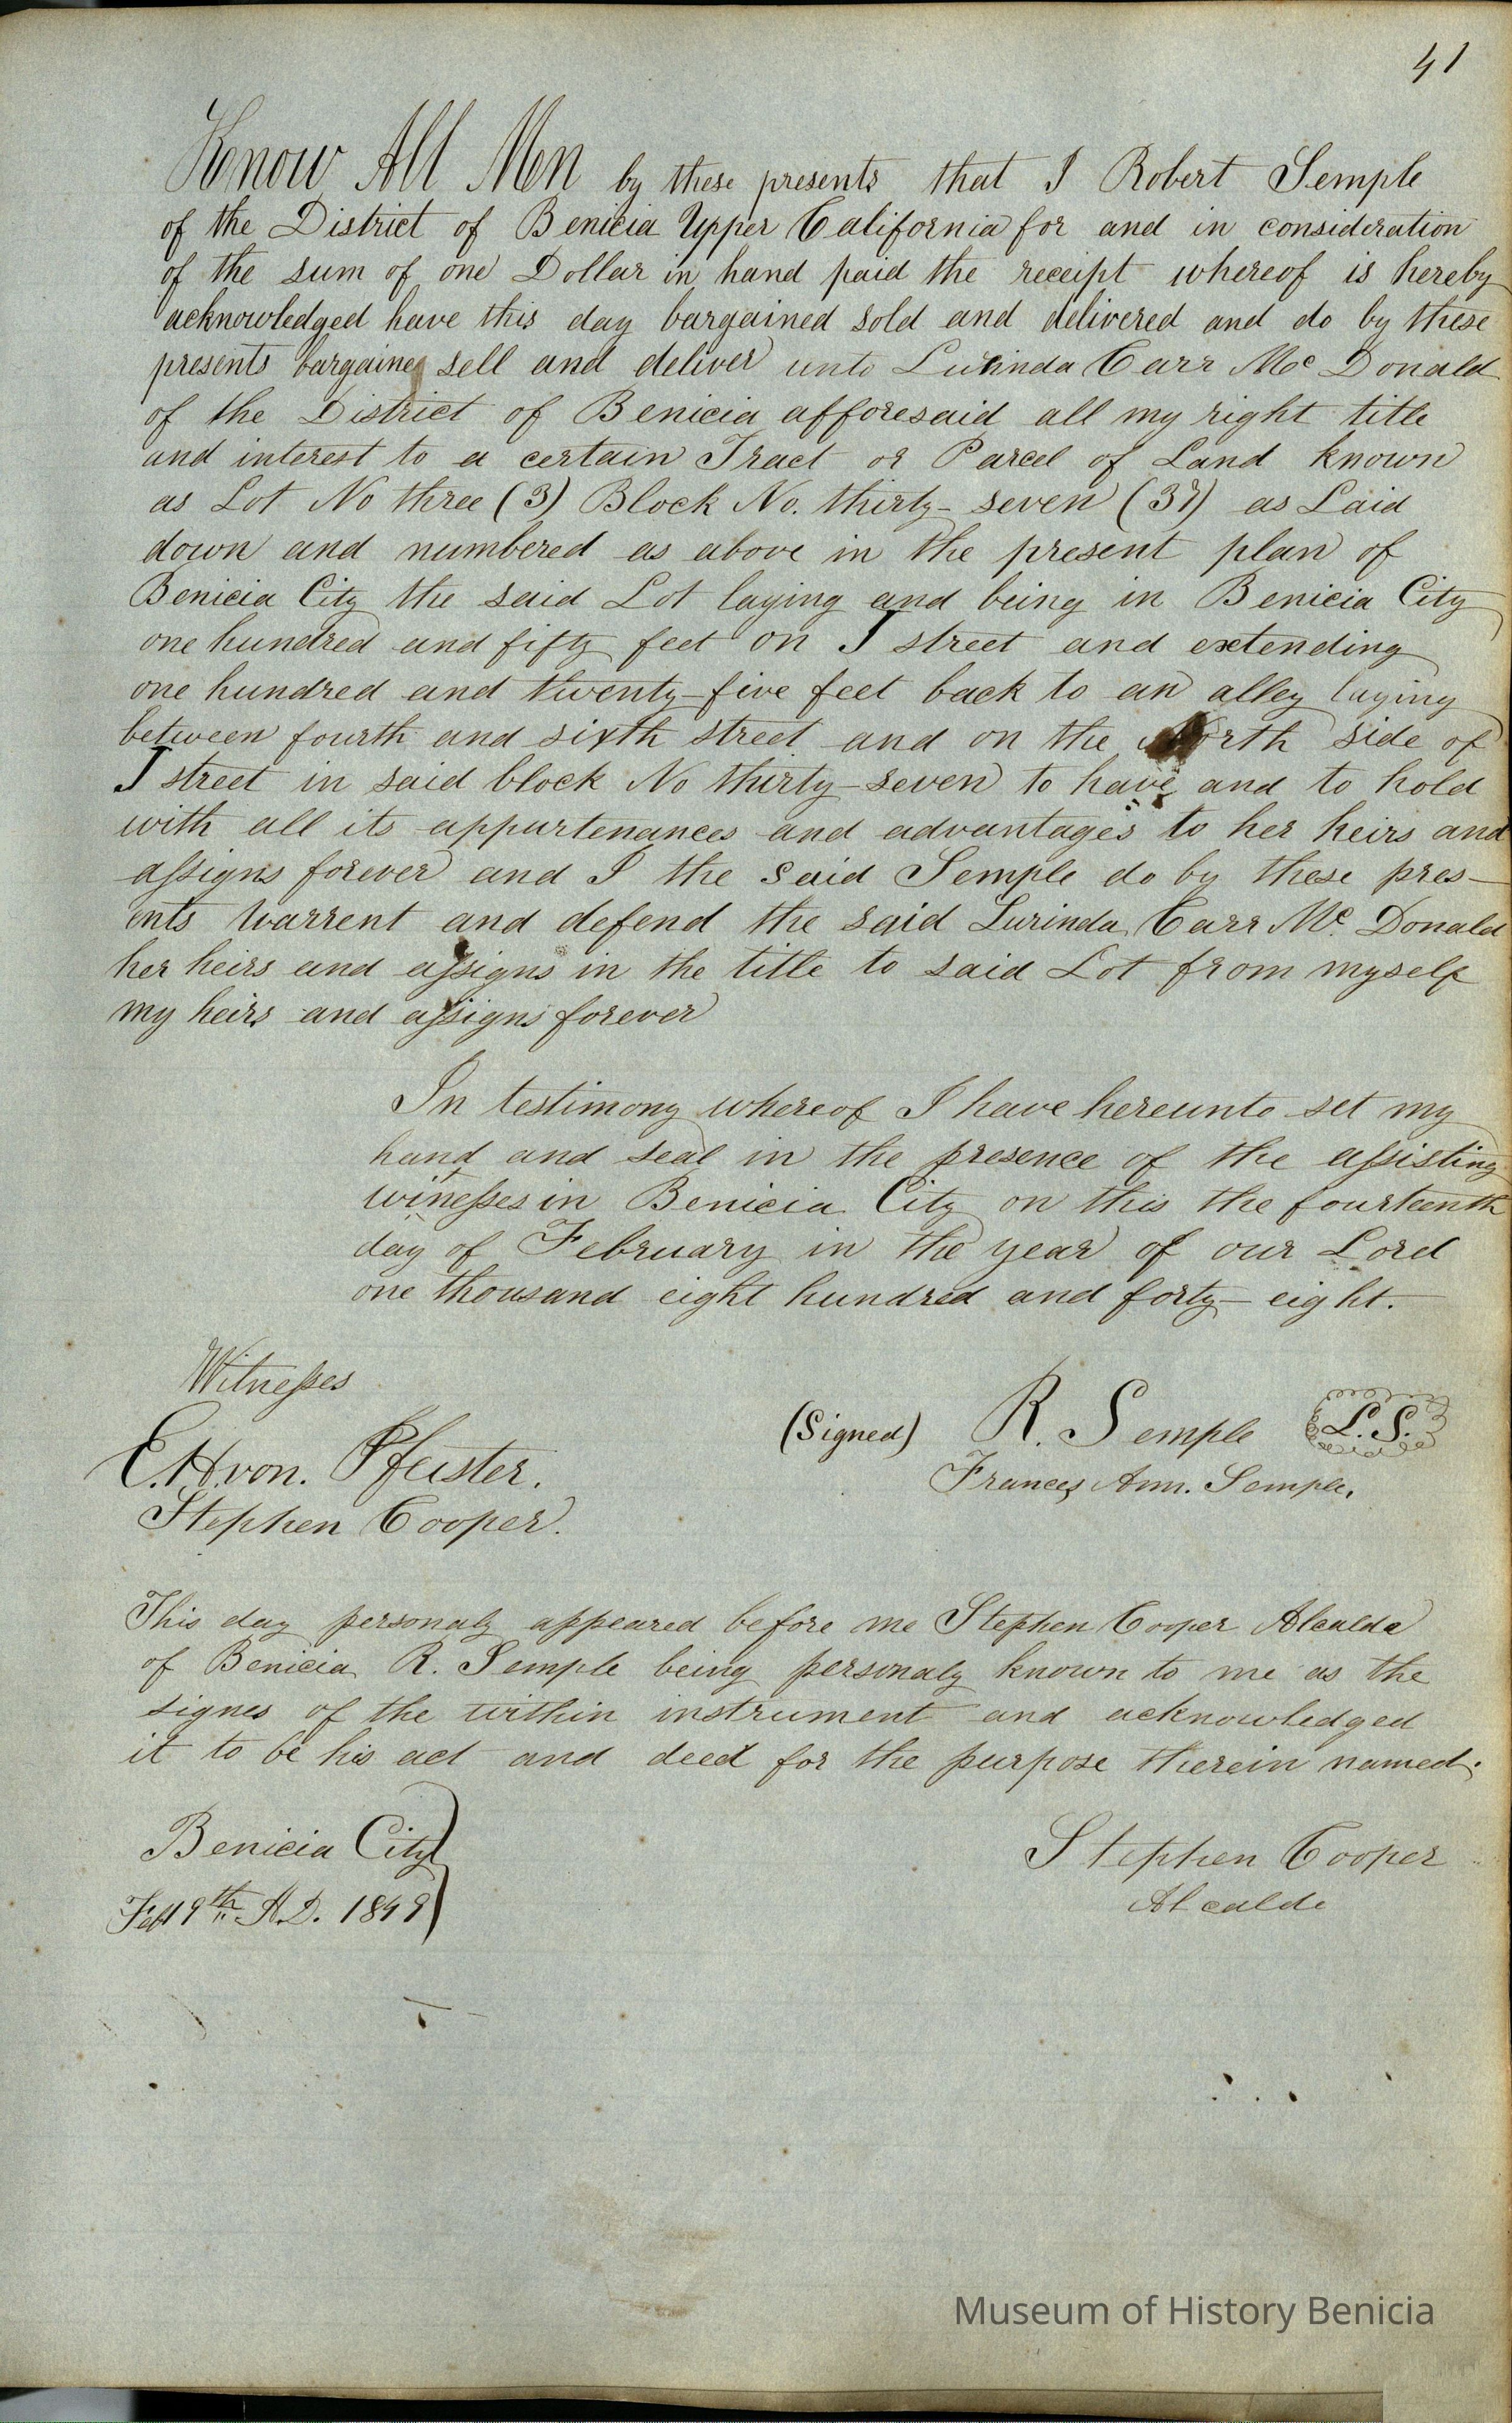 41
Know All Men by these presents that I Robert Semple
of the District of Benicia Upper California for and in consideration
of the sum of one Dollar in hand paid the receipt whereof is hereby
acknowledged have this day bargained sold and delivered and do by these
presents bargaine sell and deliver unto Lurinda Carr Mc Donald
of the District of Benicia afforesaid all my right title
and interest to a certain Tract or Parcel of Land known
as Lot No three (3) Block No. thirty-seven (37) as Laid
down and numbered as above in the present plan of
Benicia City the said Lot laying and being in Benicia City
one hundred and fifty feet on I street and extending
one hundred and twenty-five feet back to an alley laying
between fourth and sixth street and on the North side of
I street in said block No thirty-seven to have and to hold
with all its appurtenances and advantages to her heirs and
assigns forever and I the said Semple do by these pres-
ents warrent and defend the said Lurinda Carr Mc. Donald
her heirs and assigns in the title to said Lot from myself
my heirs and assigns forever
In testimony whereof I have hereunto set my
hand and seal in the presence of the assisting
witnesses in Benicia City on this the fourteenth
day of February in the year of our Lord
one thousand eight hundred and forty-eight.
Witnesses
(Signed) R. Semple L.S.
E.H.von. Pfeister.
Frances Ann. Semple.
Stephen Cooper.
This day personaly appeared before me Stephen Cooper Alcalda
of Benicia R. Semple being personaly known to me as the
signes of the within instrument and acknowledged
it to be his act and deed for the purpose therein named.
Benicia City
Stephen Cooper
Feb 19th A.D. 1849
Alcalde
Museum of History Benicia